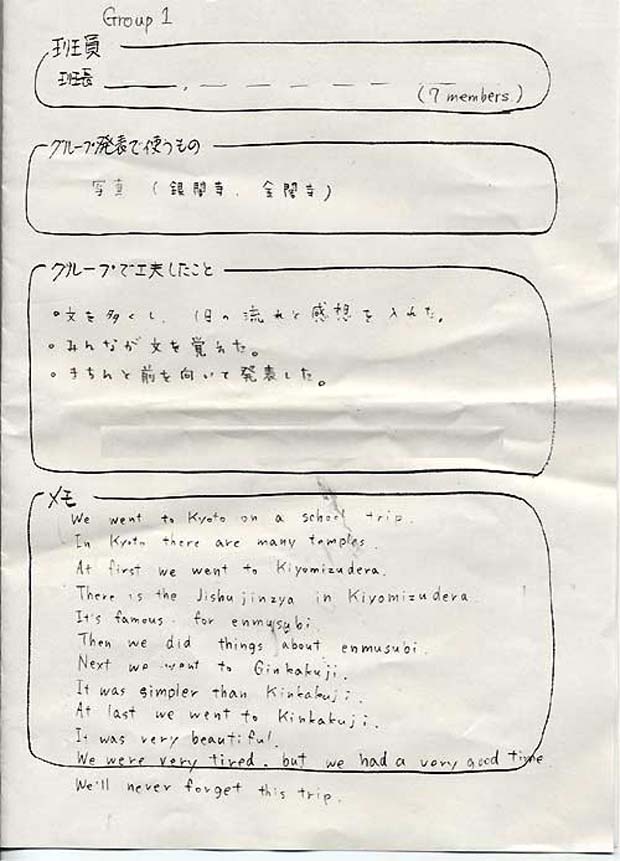 Group 1
班員
班長
(7 members)
グループ発表で使うもの
写真 (銀閣寺、金閣寺)
グループで工夫したこと
・文を多くし、1日の流れと感想を入れた。
・みんなが文を覚えた。
・きちんと前を向いて発表した。
メモ
We went to Kyoto on a school trip.
In Kyoto there are many temples.
At first we went to Kiyomizudera.
There is the Jishujinzya in Kiyomizudera.
It's famous for enmusubi.
Then we did things about enmusubi.
Next we went to Ginkakuji.
It was simpler than Kinkakuji.
At last we went to Kinkakuji.
It was very beautiful.
We were very tired. but we had a very good time.
We'll never forget this trip.